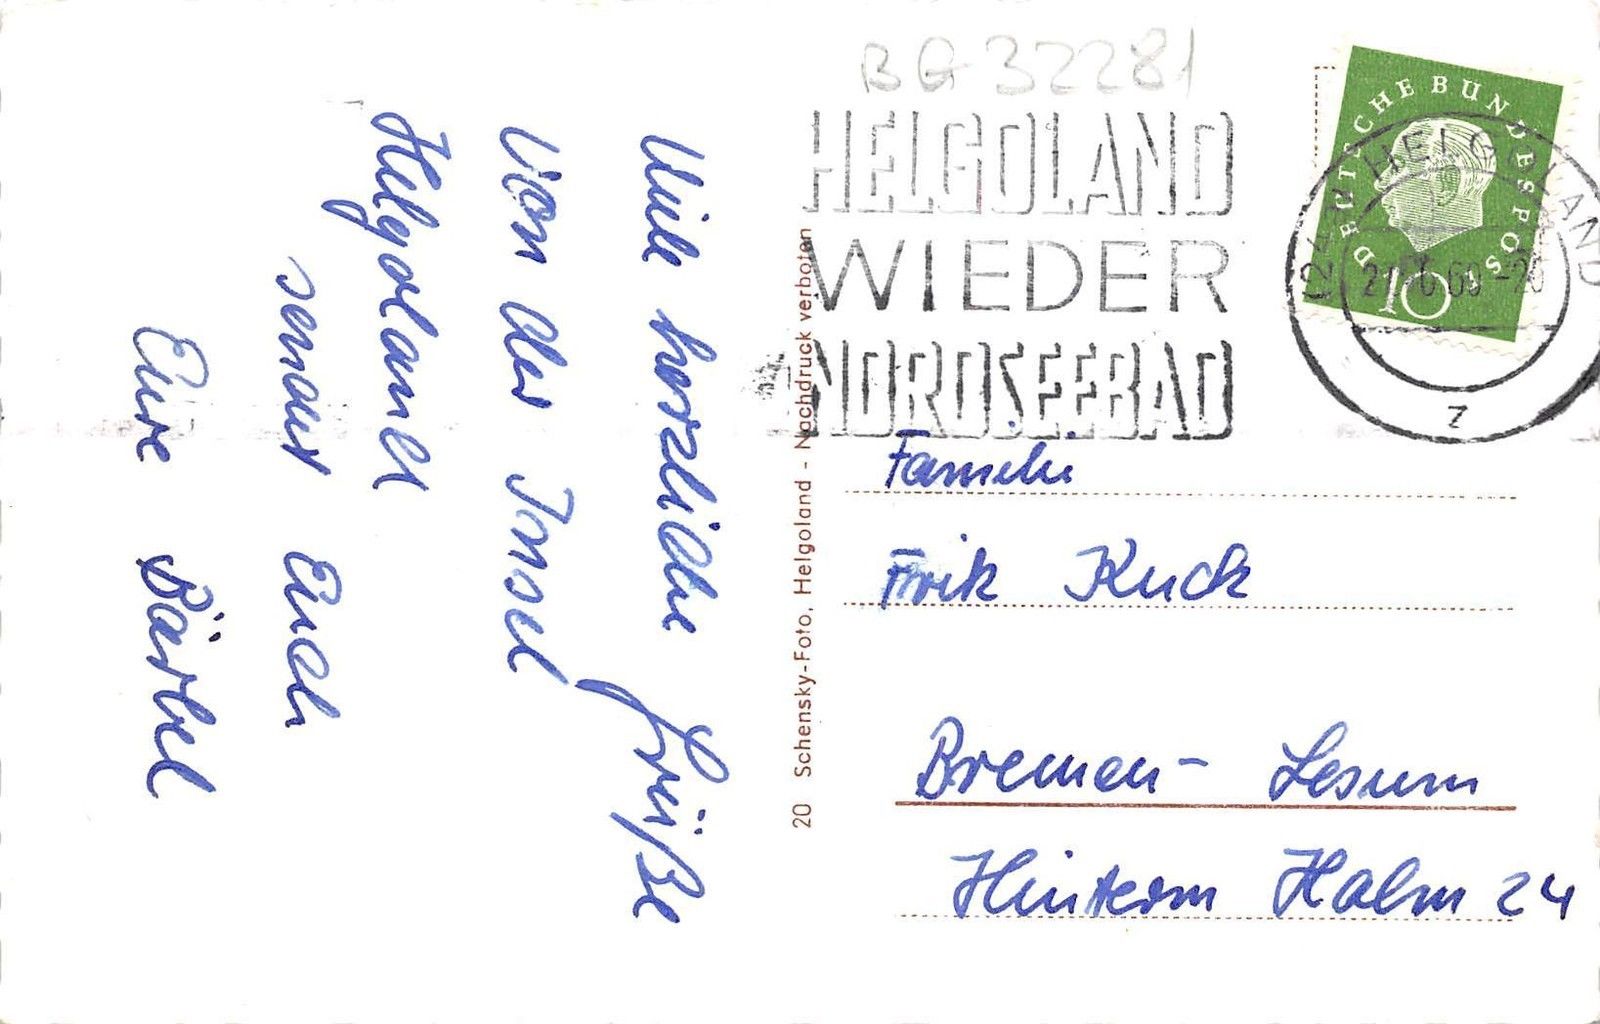 Viele herzliche Grüße
von der Insel
Helgoland
sendet Euch
Eure Bärbel
20 Schensky-Foto, Helgoland - Nachdruck verboten
BG 32281
HELGOLAND
WIEDER
NORDSEEBAD
DEUTSCHE BUNDESPOST
10
HELGOLAND
z
Familie
Frik Kuck
Bremen- Lesum
Hinterm Halm 24